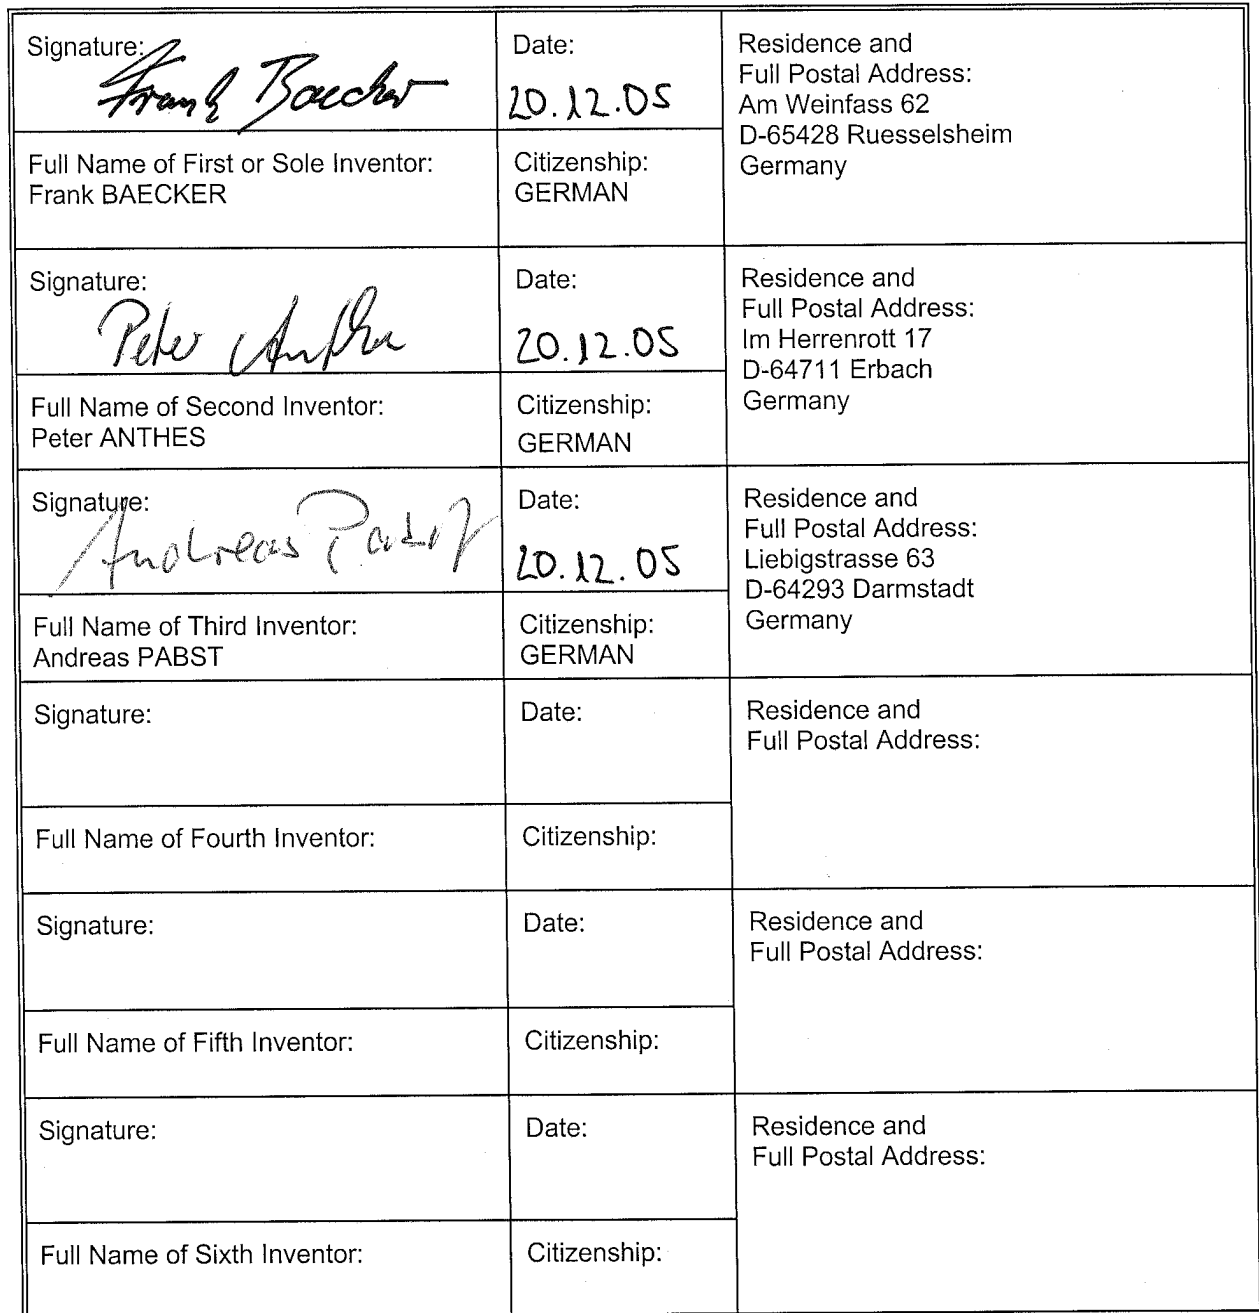 Signature:
Frank Baecker
Date:
20.12.05
Residence and
Full Postal Address:
Am Weinfass 62
D-65428 Ruesselsheim
Germany
Full Name of First or Sole Inventor:
Frank BAECKER
Citizenship:
GERMAN
Signature:
Peter Anthes
Date:
20.12.05
Residence and
Full Postal Address:
Im Herrenrott 17
D-64711 Erbach
Germany
Full Name of Second Inventor:
Peter ANTHES
Citizenship:
GERMAN
Signature:
Andreas Pabst
Date:
20.12.05
Residence and
Full Postal Address:
Liebigstrasse 63
D-64293 Darmstadt
Germany
Full Name of Third Inventor:
Andreas PABST
Citizenship:
GERMAN
Signature:
Date:
Residence and
Full Postal Address:
Full Name of Fourth Inventor:
Citizenship:
Signature:
Date:
Residence and
Full Postal Address:
Full Name of Fifth Inventor:
Citizenship:
Signature:
Date:
Residence and
Full Postal Address:
Full Name of Sixth Inventor:
Citizenship: